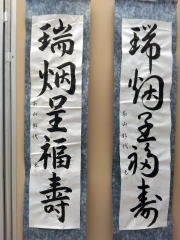 瑞烟呈福壽
瑞烟呈福壽